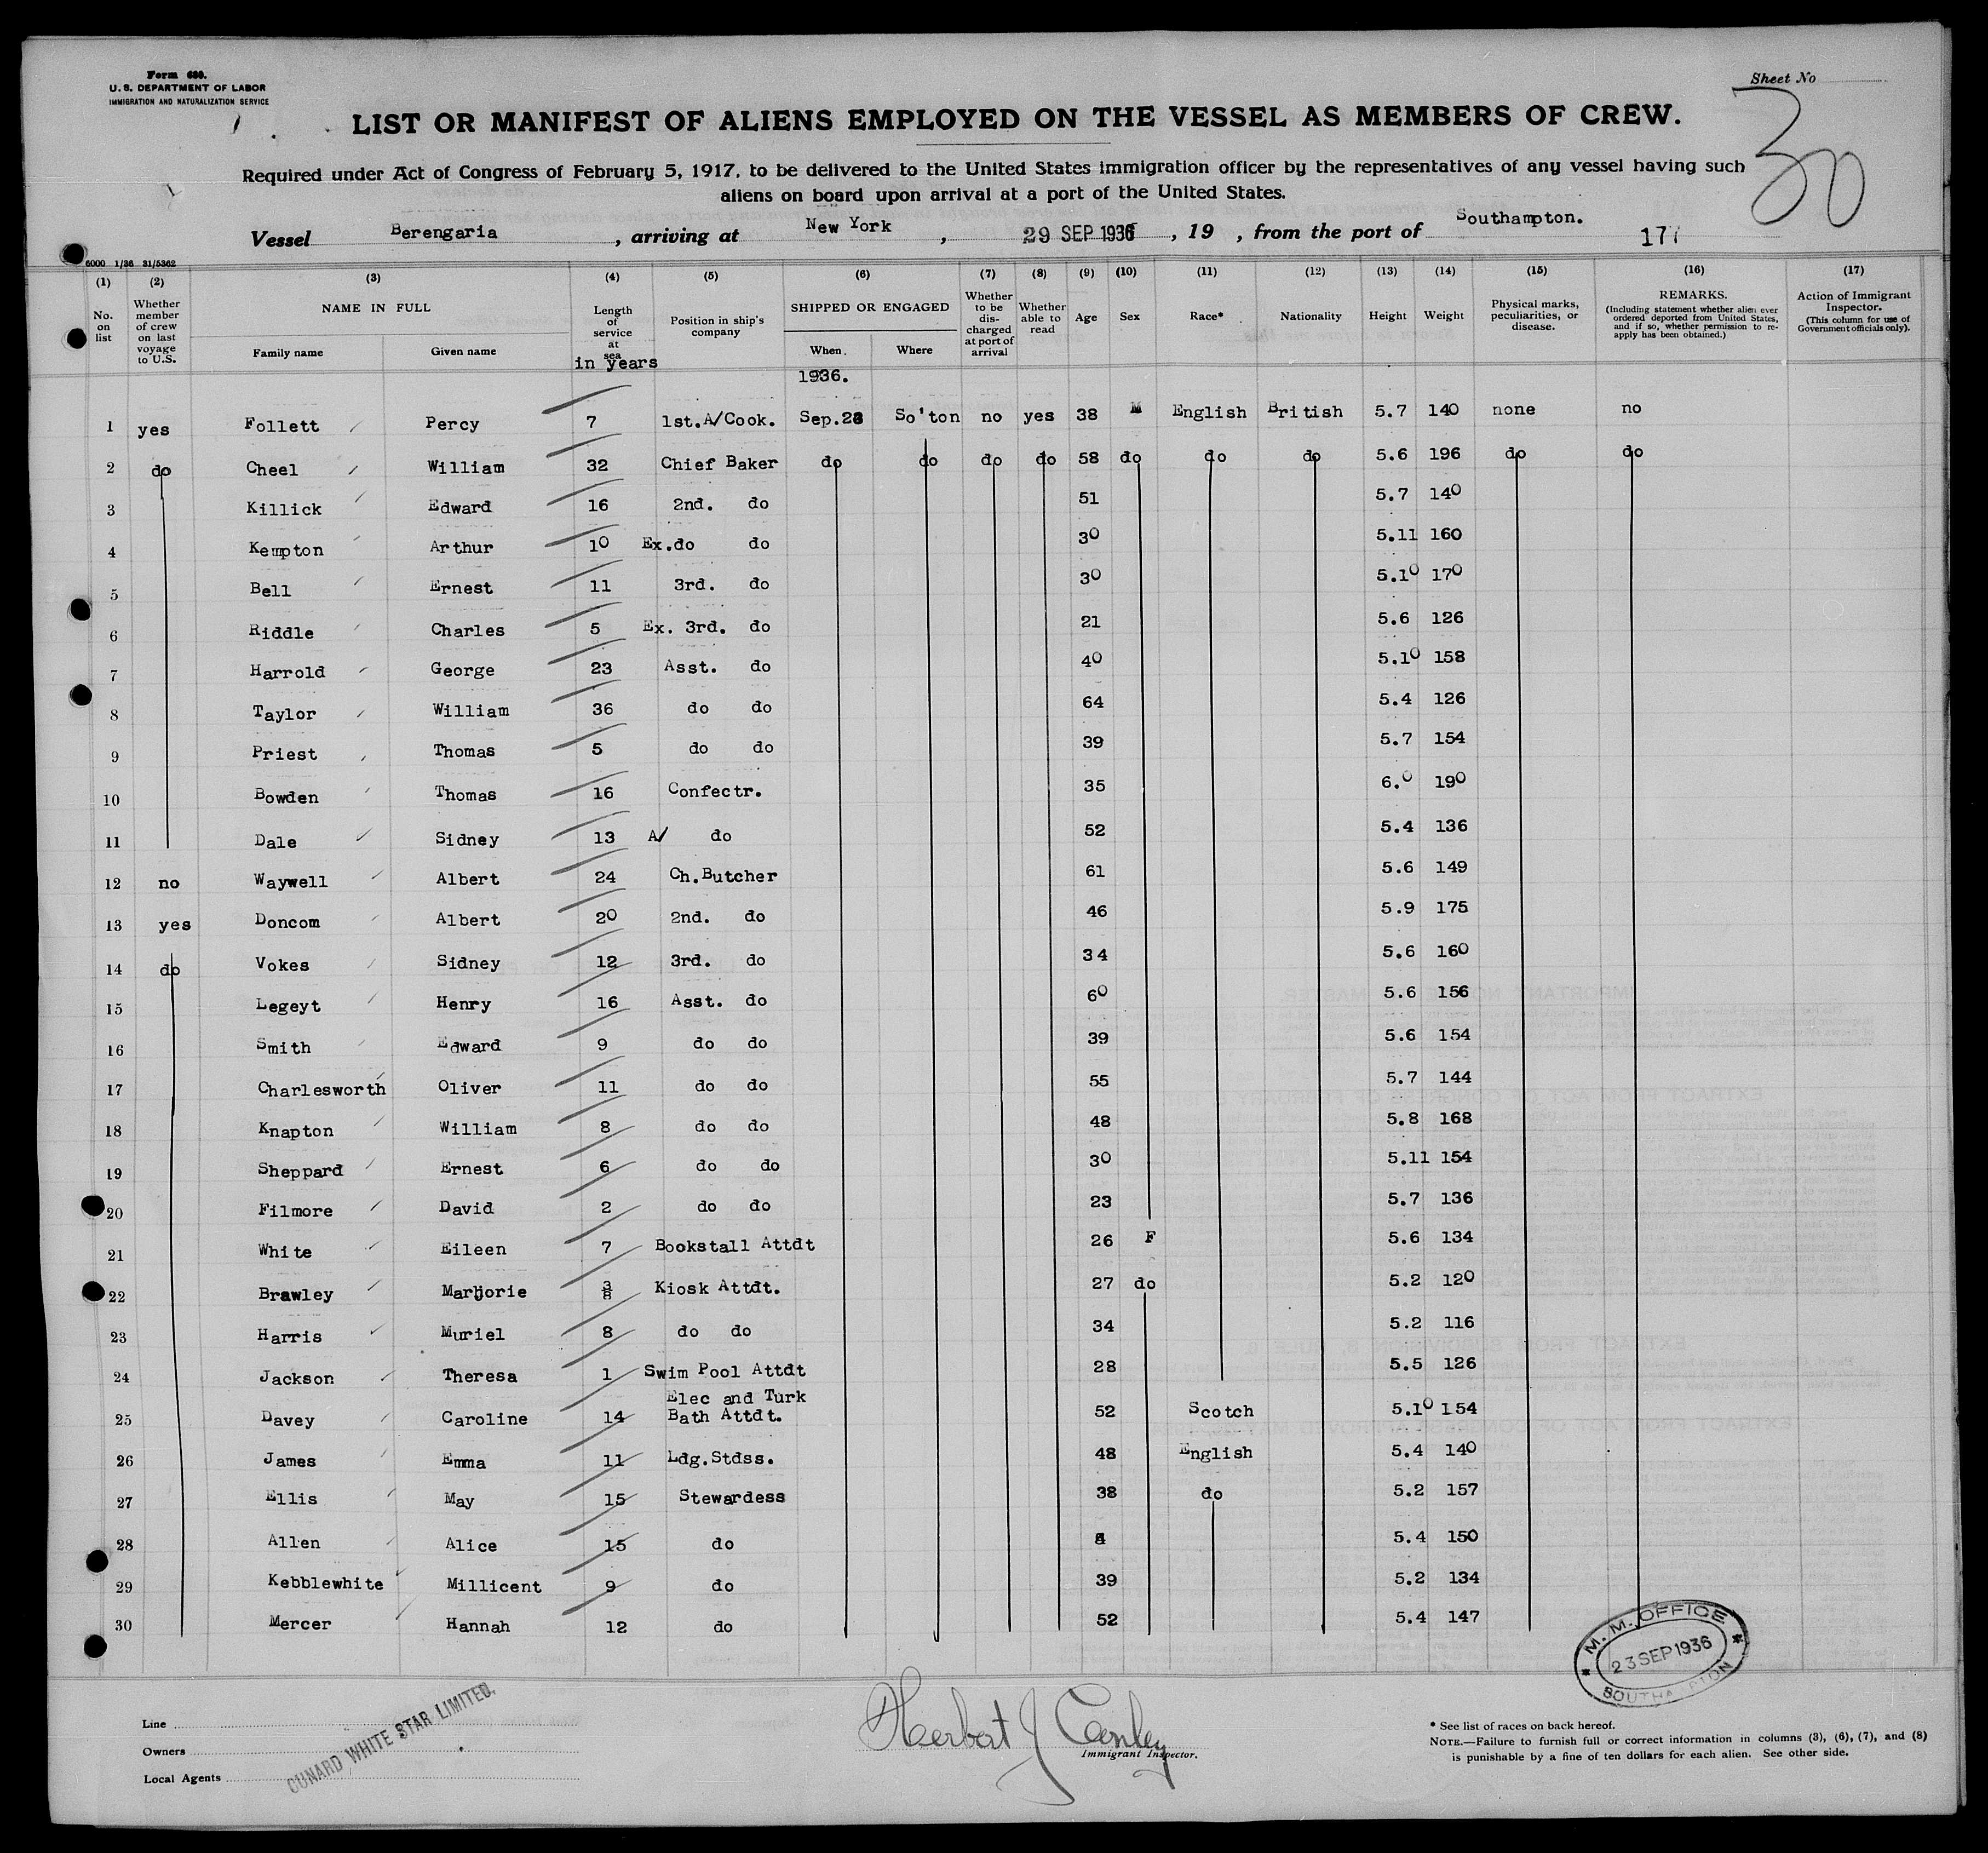 Form 680.
U. S. DEPARTMENT OF LABOR
IMMIGRATION AND NATURALIZATION SERVICE
Sheet No
30
LIST OR MANIFEST OF ALIENS EMPLOYED ON THE VESSEL AS MEMBERS OF CREW.
Required under Act of Congress of February 5, 1917, to be delivered to the United States immigration officer by the representatives of any vessel having such
aliens on board upon arrival at a port of the United States.
Vessel Berengaria, arriving at New York, 29 SEP 1936, 19 , from the port of Southampton.
6000 1/36 31/5362
(1) (2) (3) (4) (5) (6) (7) (8) (9) (10) (11) (12) (13) (14) (15) (16) (17)
No. on list
Whether member of crew on last voyage to U.S.
NAME IN FULL
Family name
Given name
Length of service at sea
in years
Position in ship's company
SHIPPED OR ENGAGED
When
Where
Whether to be discharged at port of arrival
Whether able to read
Age
Sex
Race*
Nationality
Height
Weight
Physical marks, peculiarities, or disease.
REMARKS.
(Including statement whether alien ever ordered deported from United States, and if so, whether permission to re-apply has been obtained.)
Action of Immigrant Inspector.
(This column for use of Government officials only).
1936.
1 yes Follett Percy 7 1st.A/Cook. Sep. So'ton no yes 38 M English British 5.7 140 none no
2 do Cheel William 32 Chief Baker do do do do 58 do do do 5.6 196 do do
3 Killick Edward 16 2nd. do 51 5.7 140
4 Kempton Arthur 10 Ex.do do 30 5.11 160
5 Bell Ernest 11 3rd. do 30 5.10 170
6 Riddle Charles 5 Ex. 3rd. do 21 5.6 126
7 Harrold George 23 Asst. do 40 5.10 158
8 Taylor William 36 do do 64 5.4 126
9 Priest Thomas 5 do do 39 5.7 154
10 Bowden Thomas 16 Confectr. 35 6.0 190
11 Dale Sidney 13 A/ do 52 5.4 136
12 no Waywell Albert 24 Ch.Butcher 61 5.6 149
13 yes Doncom Albert 20 2nd. do 46 5.9 175
14 do Vokes Sidney 12 3rd. do 34 5.6 160
15 Legeyt Henry 16 Asst. do 60 5.6 156
16 Smith Edward 9 do do 39 5.6 154
17 Charlesworth Oliver 11 do do 55 5.7 144
18 Knapton William 8 do do 48 5.8 168
19 Sheppard Ernest 6 do do 30 5.11 154
20 Filmore David 2 do do 23 5.7 136
21 White Eileen 7 Bookstall Attdt 26 F 5.6 134
22 Brawley Marjorie Kiosk Attdt. 27 do 5.2 120
23 Harris Muriel 8 do do 34 5.2 116
24 Jackson Theresa 1 Swim Pool Attdt 28 5.5 126
Elec and Turk
25 Davey Caroline 14 Bath Attdt. 52 Scotch 5.10 154
26 James Emma 11 Ldg.Stdss. 48 English 5.4 140
27 Ellis May 15 Stewardess 38 do 5.2 157
28 Allen Alice 15 do 5.4 150
29 Kebblewhite Millicent 9 do 39 5.2 134
30 Mercer Hannah 12 do 52 5.4 147
M. M. OFFICE
23 SEP 1936
Line
Owners
Local Agents
CUNARD WHITE STAR LIMITED.
Herbert J
Immigrant Inspector.
* See list of races on back hereof.
NOTE.—Failure to furnish full or correct information in columns (3), (6), (7), and (8)
is punishable by a fine of ten dollars for each alien. See other side.